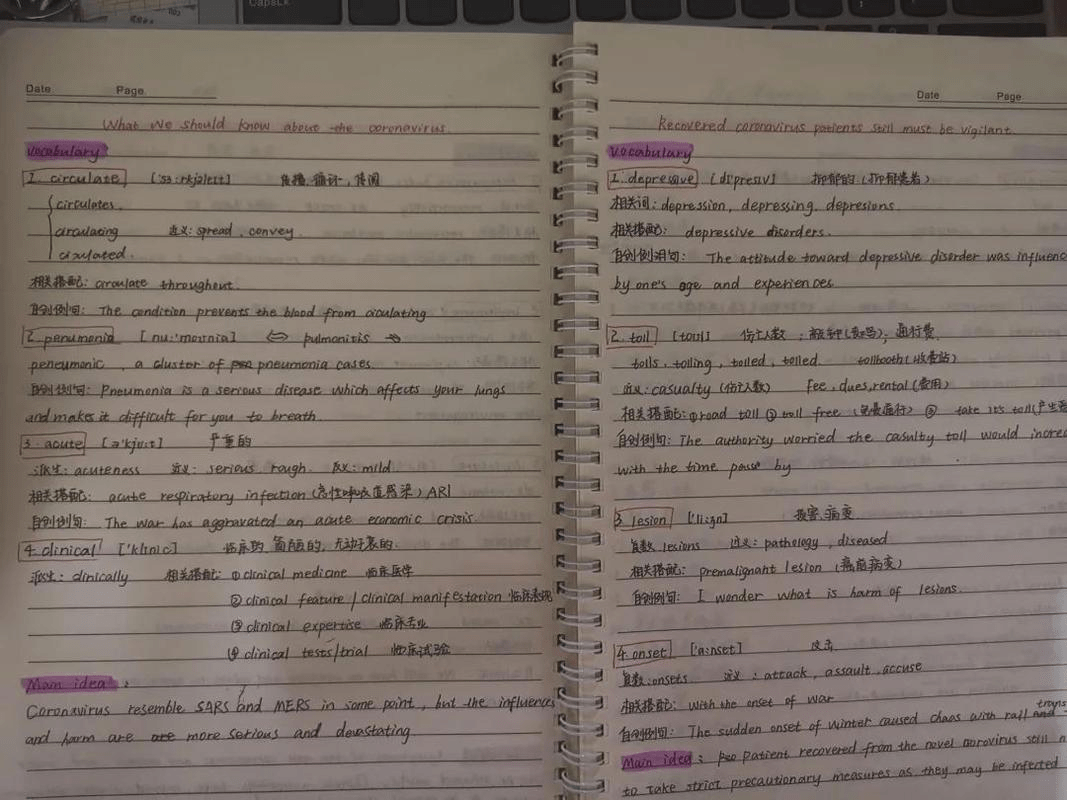 CapsLk
Date Page
What we should know about the coronavirus.
vocabulary
1. circulate ['sɜ:rkjəleɪt] 传播,循环,传阅
circulates.
circulating 近义: spread, convey.
ciculated.
相关搭配: circulate throughout.
自创例句: The condition prevents the blood from ciculating
2. penumonia [nu:'moʊnia] ⇔ pulmonitis
peneumonic, a cluster of pneumonia cases.
自创例句: Pneumonia is a serious disease which affects your lungs
and makes it difficult for you to breath
3. acute [ə'kju:t] 严重的
派生: acuteness 近义: serious, rough. 反义: mild
相关搭配: acute respiratory infection (急性呼吸道感染) ARI
自创例句: The war has aggravated an acute economic crisis.
4. clinical ['klɪnɪc] 临床的, 简陋的, 无动于衷的.
派生: clinically 相关搭配: ① clinical medicine 临床医学
② clinical feature / clinical manifestation 临床表现
③ clinical expertise 临床专业
④ clinical tests/trial 临床试验
Main idea:
Coronavirus resemble SARS and MERS in some point, but the influences
and harm are more serious and devastating
Date Page
Recovered coronavirus patients still must be vigilant.
vocabulary
1. depressive [dɪ'presɪv] 抑郁的 (抑郁患者)
相关词: depression, depressing. depresions.
相关搭配: depressive disorders.
自创例词句: The attitude toward depressive disorder was influenc
by one's age and experiences.
2. toll [toʊl] 伤亡人数; 敲钟 ; 通行费.
tolls, tolling, tolled, tolled. tollbooth (收费站)
近义: casualty (伤亡人数) fee, dues, rental (费用)
相关搭配: ① road toll ② toll free (免费通行) ③ take its toll (产生
自创例句: The authority worried the casulty toll would increa
with the time pass by
3 lesion ['li:ʒn] 损害, 病变
复数 lesions 近义: pathology, diseased
相关搭配: premalignant lesion (癌前病变)
自创例句: I wonder what is harm of lesions.
4. onset ['a:nset] 攻击
复数: onsets 近义: attack, assault, accuse
相关搭配: with the onset of war
自创例句: The sudden onset of winter caused chaos with rail and trans
Main idea: patient recovered from the novel corovirus still n
to take strict precautionary measures as they may be infected